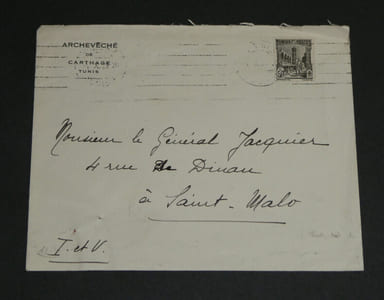 ARCHEVÊCHÉ
DE
CARTHAGE
TUNIS
Monsieur le Général Jacquier
4 rue de Dinan
à Saint-Malo
I. et V.